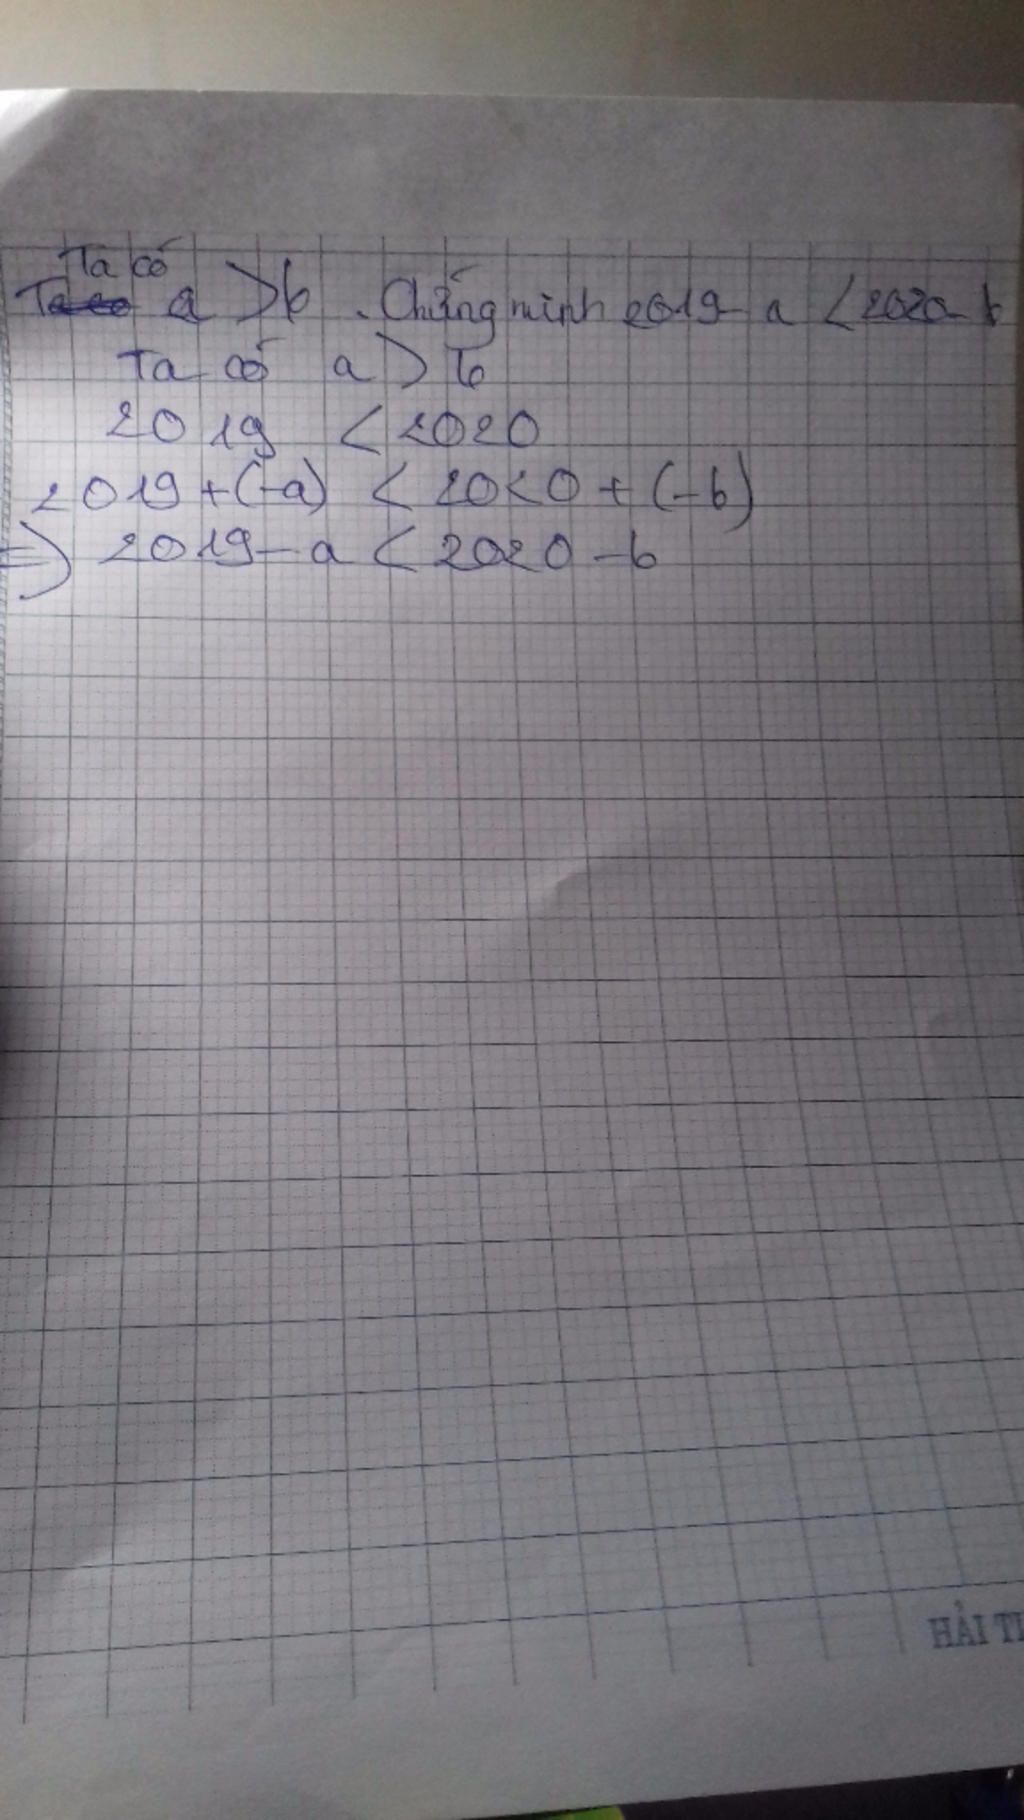 Ta có
Ta có a > b . Chứng minh 2019 - a < 2020 - b
Ta có a > b
2019 < 2020
2019 + (-a) < 2020 + (-b)
=> 2019 - a < 2020 - b
HẢI